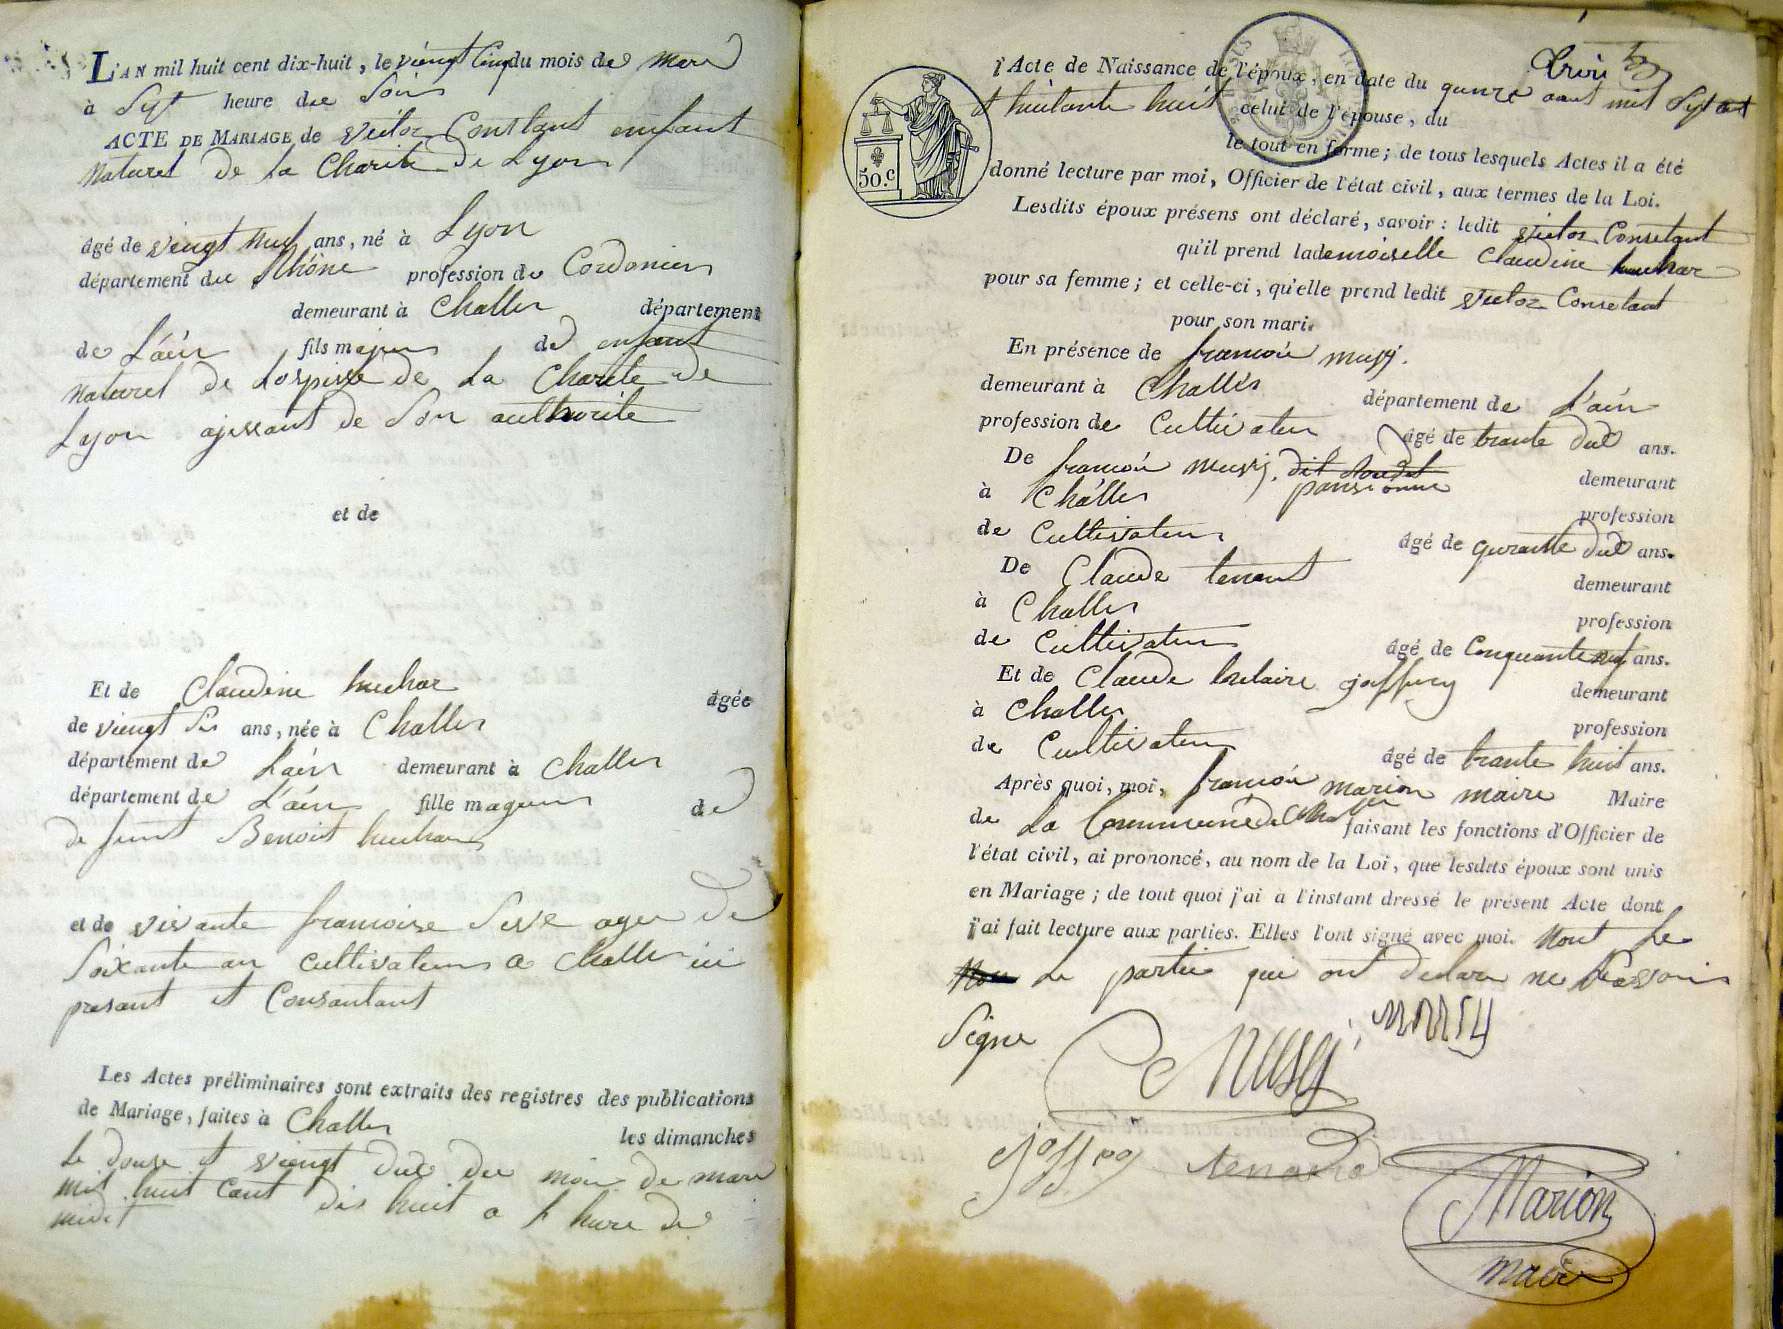 L'AN mil huit cent dix-huit, le viengt Cinq du mois de Mars
à Sept heure du Soir
ACTE DE MARIAGE de Victor Constant enfant
naturel de la Charité de Lyon
âgé de viengt neuf ans, né à Lyon
département du Rhône profession de Cordonier
demeurant à Challes département
de L'ain fils majeur de enfant
naturel de Lospisse de La Charité de
Lyon ajissant de Son authorité
et de
Et de Claudine huchar âgée
de viengt Sis ans, née à Challes
département de L'ain demeurant à Challes
département de L'ain fille mageure de
de funt Benoit huchar
et de vivante francoise Seve agee de
Soixante an cultivateur a Challes ici
presant et Consantant
Les Actes préliminaires sont extraits des registres des publications
de Mariage, faites à Challes les dimanches
Le douse et viengt deux du mois de mars
mil huit cant dis huit a l hure de
midit
trois
l'Acte de Naissance de l'époux, en date du quinze aout mil Sept cent
huitante huit celui de l'épouse, du
le tout en forme; de tous lesquels Actes il a été
50.c
donné lecture par moi, Officier de l'état civil, aux termes de la Loi.
Lesdits époux présens ont déclaré, savoir: ledit Victor Constant
qu'il prend lademoiselle Claudine huchar
pour sa femme; et celle-ci, qu'elle prend ledit Victor Constant
pour son mari.
En présence de francois mussy.
demeurant à Challes département de L'ain
profession de Cultivateur âgé de trante deux ans.
De francois mussy, dit demeurant
à Challes profession
de Cultivateur âgé de qurante deux ans.
De Claude tenant demeurant
à Challes profession
de Cultivateur âgé de Cinquante neuf ans.
Et de Claude hilaire joffrey demeurant
à Challes profession
de Cultivateur âgé de trante huit ans.
Après quoi, moi, francois marion maire Maire
de La Commune de Challes faisant les fonctions d'Officier de
l'état civil, ai prononcé, au nom de la Loi, que lesdits époux sont unis
en Mariage; de tout quoi j'ai à l'instant dressé le présent Acte dont
j'ai fait lecture aux parties. Elles l'ont signé avec moi. Nont
Le partie qui ont declare ne Savoir
Signe
Mussy mussy
joffrey tenand
Marion
maire